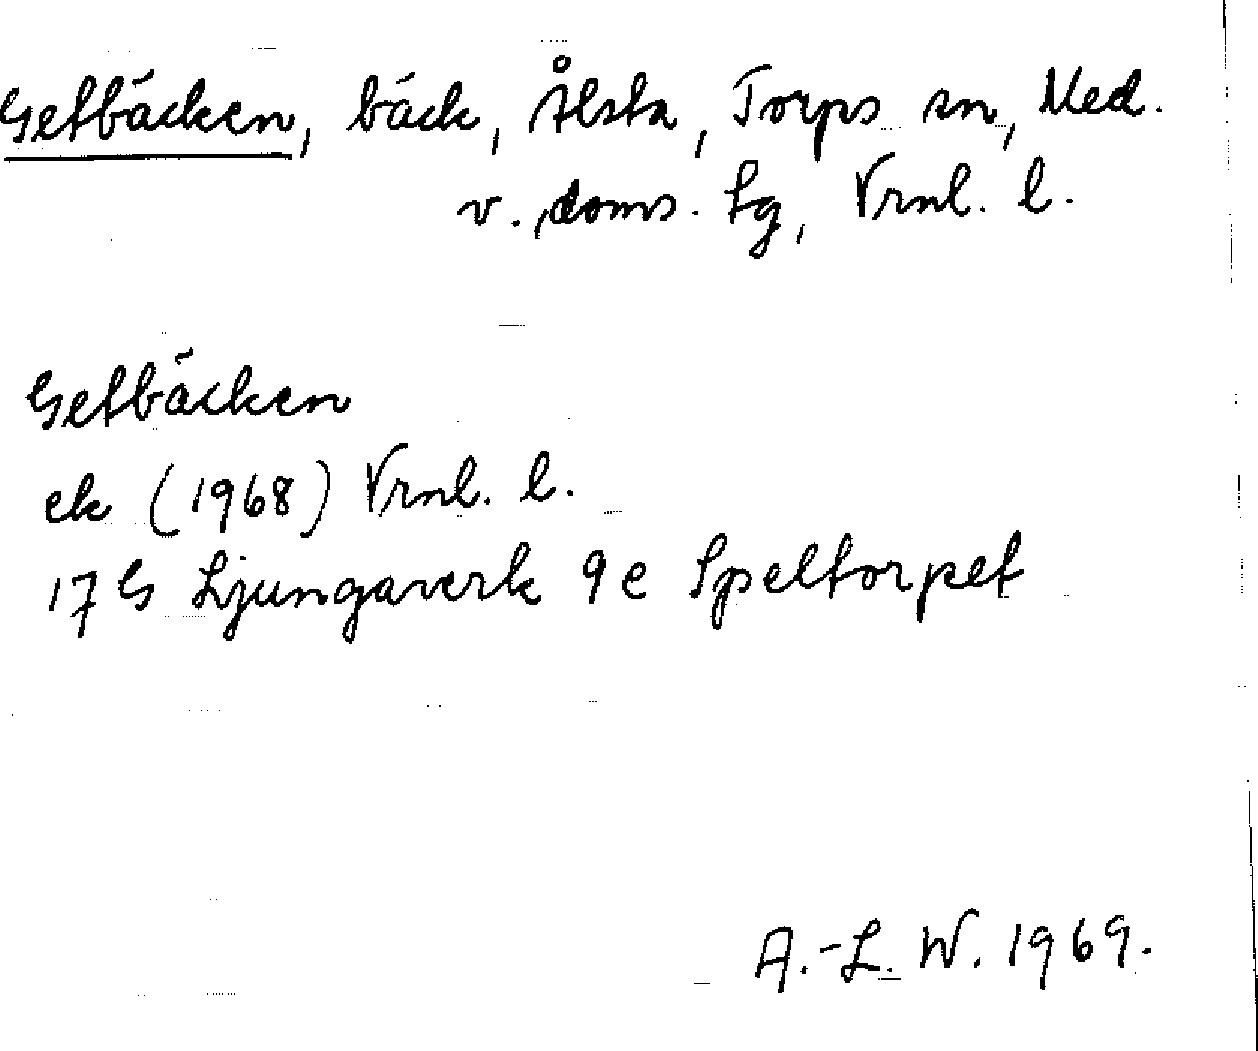 Getbäcken, bäck, Ålsta, Torps sn, Med.
v. doms. Lg, Vrnl. l.
Getbäcken
ek (1968) Vrnl. l.
17 G Ljungaverk 9 e Speltorpet
A.-L. W. 1969.